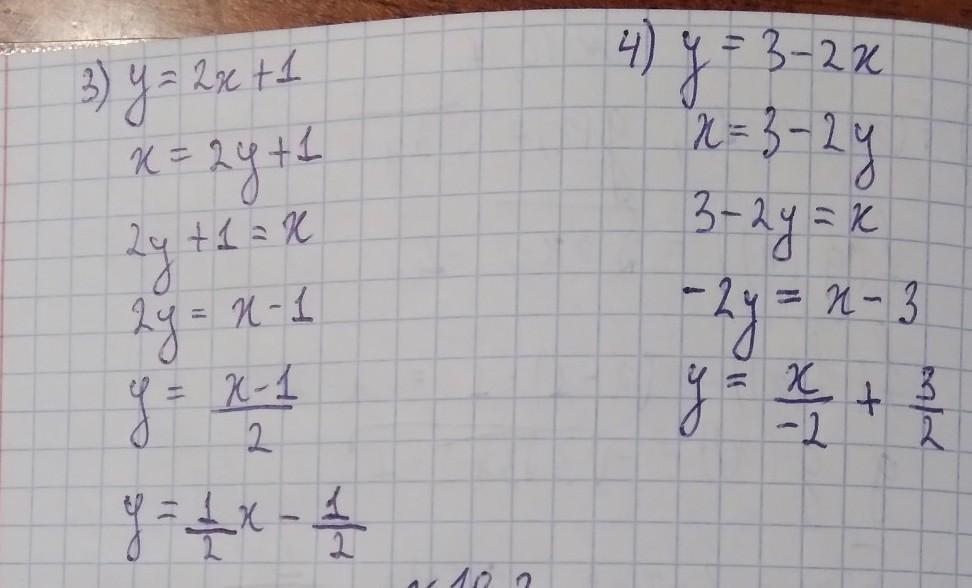 3) y = 2x + 1
x = 2y + 1
2y + 1 = x
2y = x - 1
y = \frac{x-1}{2}
y = \frac{1}{2}x - \frac{1}{2}
4) y = 3 - 2x
x = 3 - 2y
3 - 2y = x
-2y = x - 3
y = \frac{x}{-2} + \frac{3}{2}